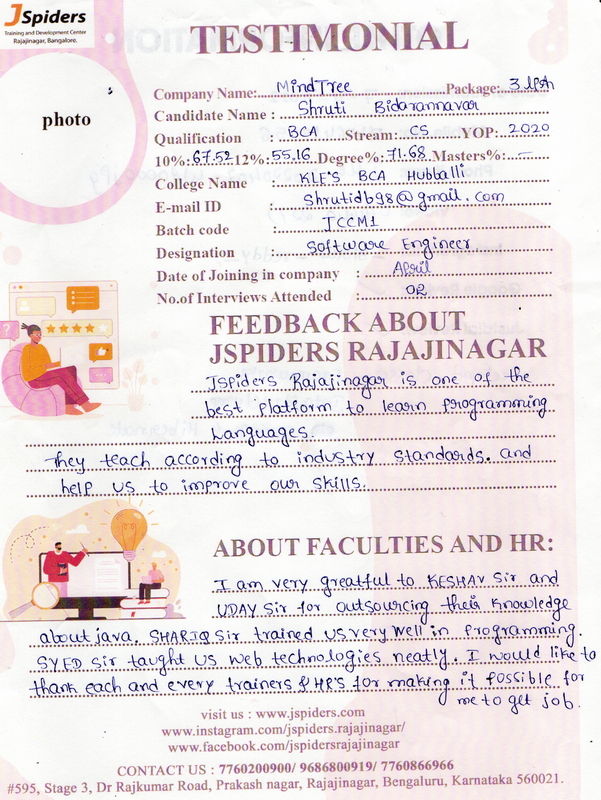 JSpiders
Training and Development Center
Rajajinagar, Bangalore.
TESTIMONIAL
photo
Company Name: MindTree Package: 3 lpa
Candidate Name : Shruti Bidarannavar
Qualification : BCA Stream: CS YOP: 2020
10%: 67.52 12%: 55.16 Degree%: 71.68 Masters%: —
College Name : KLE'S BCA Hubballi
E-mail ID : Shrutidb98@gmail.com
Batch code : JCCM1
Designation : Software Engineer
Date of Joining in company : April
No.of Interviews Attended : 02
FEEDBACK ABOUT
JSPIDERS RAJAJINAGAR
JSpiders Rajajinagar is one of the
best platform to learn programming
Languages.
They teach according to industry standards. and
help us to improve our skills.
ABOUT FACULTIES AND HR:
I am very greatful to KESHAV Sir and
UDAY Sir for outsourcing their knowledge
about java. SHARIQ Sir trained us very well in programming.
SYED Sir taught us web technologies neatly. I would like to
thank each and every trainers & HR'S for making it possible for
me to get job.
visit us : www.jspiders.com
www.instagram.com/jspiders.rajajinagar/
www.facebook.com/jspidersrajajinagar
CONTACT US : 7760200900/ 9686800919/ 7760866966
#595, Stage 3, Dr Rajkumar Road, Prakash nagar, Rajajinagar, Bengaluru, Karnataka 560021.